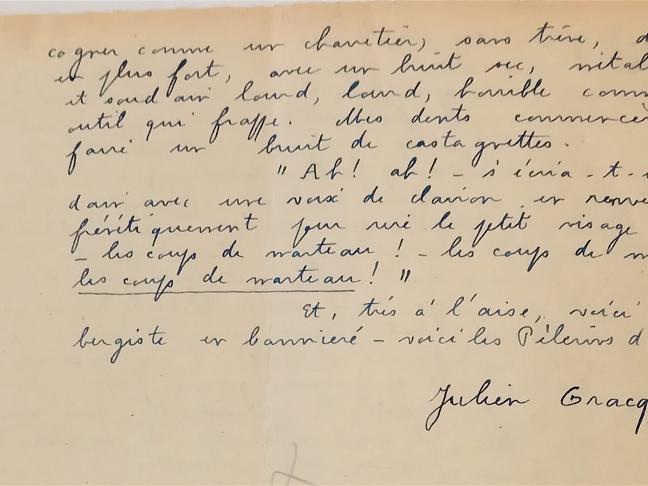 cogner comme un charretier, sans trêve, d
en plus fort, avec un bruit sec, métal
et sourd aussi lourd, lourd, horrible comm
outil qui frappe. Mes dents commencè
faire un bruit de castagnettes.
" Ah ! ah ! - s'écria-t-
dain avec une voix de clairon en renve
frénétiquement pour rire le petit visage
- les coups de marteau ! - les coups de m
les coups de marteau ! "
Et, très à l'aise, voici
bergiste en bannière - voici les Pèlerins d
Julien Gracq